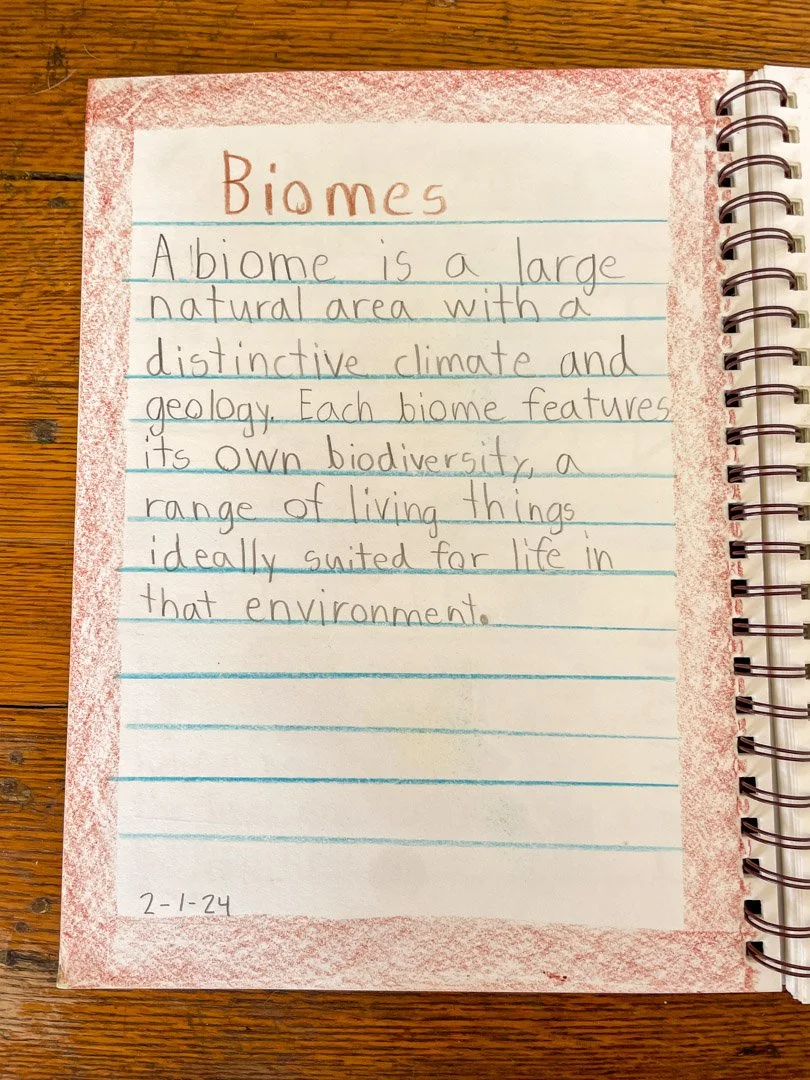 Biomes
A biome is a large
natural area with a
distinctive climate and
geology. Each biome features
its own biodiversity, a
range of living things
ideally suited for life in
that environment.
2-1-24